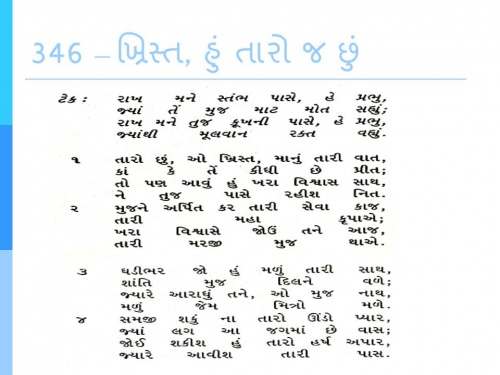 346 – ખ્રિસ્ત, હું તારો જ છું
ટેક : રાખ મને સ્તંભ પાસે, હે પ્રભુ,
જ્યાં તેં મુજ માટ મોત સહ્યું;
રાખ મને તુજ કૂખની પાસે, હે પ્રભુ,
જ્યાંથી મૂલવાન રક્ત વહ્યું.
૧ તારો છું, ઓ ખ્રિસ્ત, માનું તારી વાત,
કાં કે તેં કીધી છે પ્રીત;
તો પણ આવું હું ખરા વિશ્વાસ સાથ,
ને તુજ પાસે રહીશ નિત.
૨ મુજને અર્પિત કર તારી સેવા કાજ,
તારી મહા કૃપાએ;
ખરા વિશ્વાસે જોઉં તને આજ,
તારી મરજી મુજ થાએ.
૩ ઘડીભર જો હું મળું તારી સાથ,
શાંતિ મુજ દિલને વળે;
જ્યારે આરાધું તને, ઓ મુજ નાથ,
મળું જેમ મિત્રો મળે.
૪ સમજી શકું ના તારો ઊંડો પ્યાર,
જ્યાં લગ આ જગમાં છે વાસ;
જોઈ શકીશ હું તારો હર્ષ અપાર,
જ્યારે આવીશ તારી પાસ.